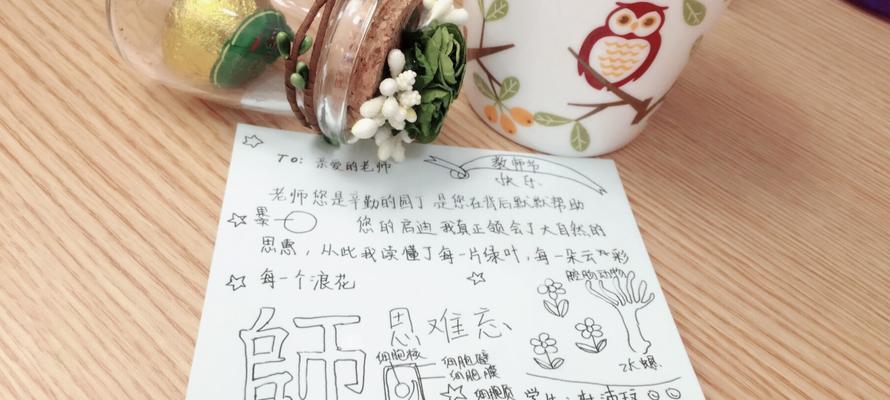 TO: 亲爱的老师
教师节
快乐
老师您是辛勤的园丁 是您在背后默默帮助
您的启迪 我真正领会了大自然的
恩惠，从此我读懂了每一片绿叶，每一朵云彩
每一个浪花
腔肠动物
師恩难忘
细胞核
细胞壁
细胞膜
细胞质
水螅
学生：